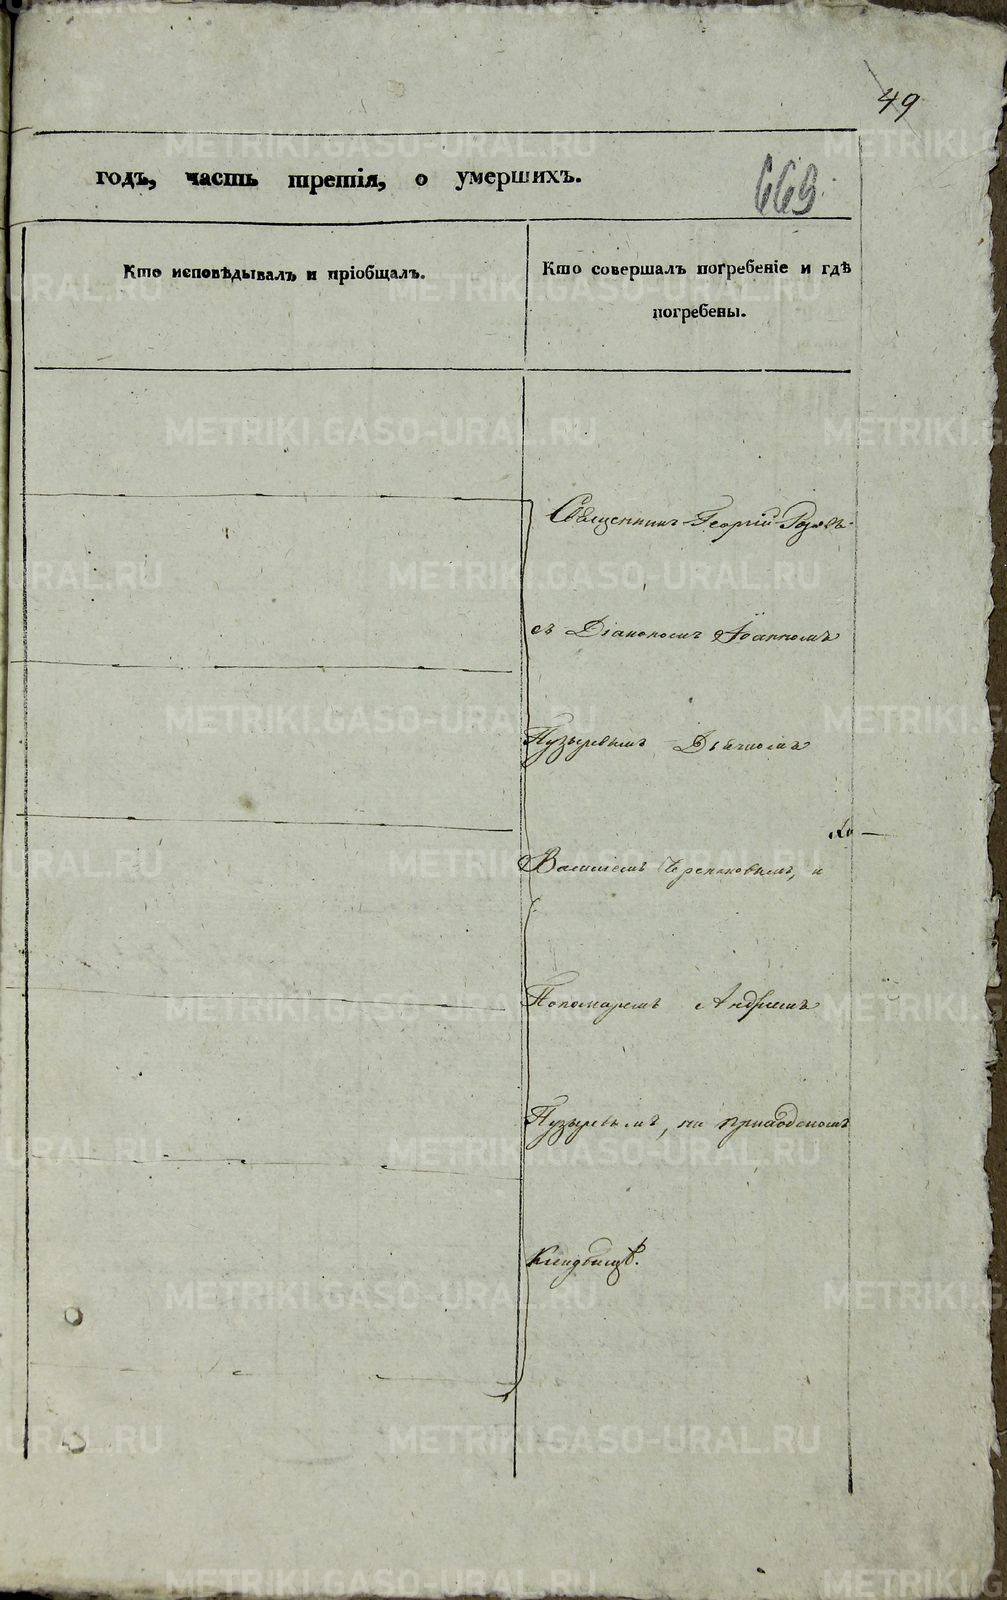 49
годъ, часть третія, о умершихъ.
669
Кто исповѣдывалъ и пріобщалъ.
Кто совершалъ погребеніе и гдѣ
погребены.
Священникъ Георгій
съ Діакономъ Іоанномъ
Пузыревымъ Дьячкомъ
Василіемъ Черепановымъ, и
Пономаремъ Андреемъ
Пузыревымъ, на приходскомъ
Кладбищѣ.
METRIKI.GASO-URAL.RU